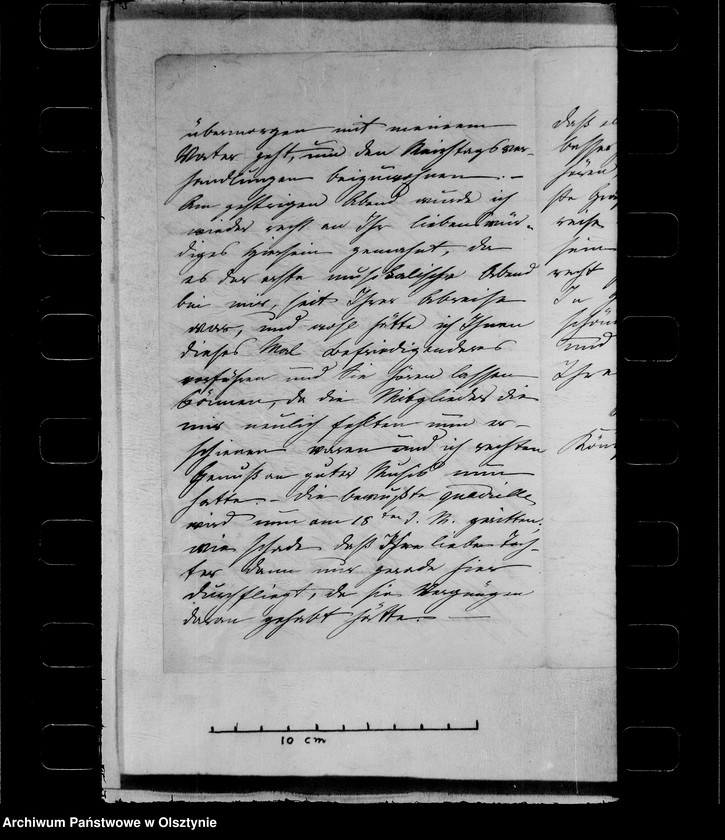 übermorgen mit meinem
Vater geht, um den Reichstagsver-
handlungen beizuwohnen. –
Am gestrigen Abend wurde ich
wieder recht an Ihr liebenswür-
diges Hiersein gemahnt, da
es der erste musikalische Abend
bei mir, seit Ihrer Abreise
war, und wohl hätte ich Ihnen
dieses Mal Befriedigenderes
vorführen und Sie hören lassen
können, da die Mitglieder die
mir neulich fehlten nun er-
schienen waren und ich rechten
Genuß an guter Musik nun
hatte. – Die bewußte Quadrille
wird nun am 18ten d. M. geritten,
wie schade daß Ihre liebe Toch-
ter dann nur gerade hier
durchfliegt, da sie Vergnügen
daran gehabt hätte. –
daß
besser
hören
reche
sein
recht
In
schön
und
Ihre
Köni
10 cm
Archiwum Państwowe w Olsztynie